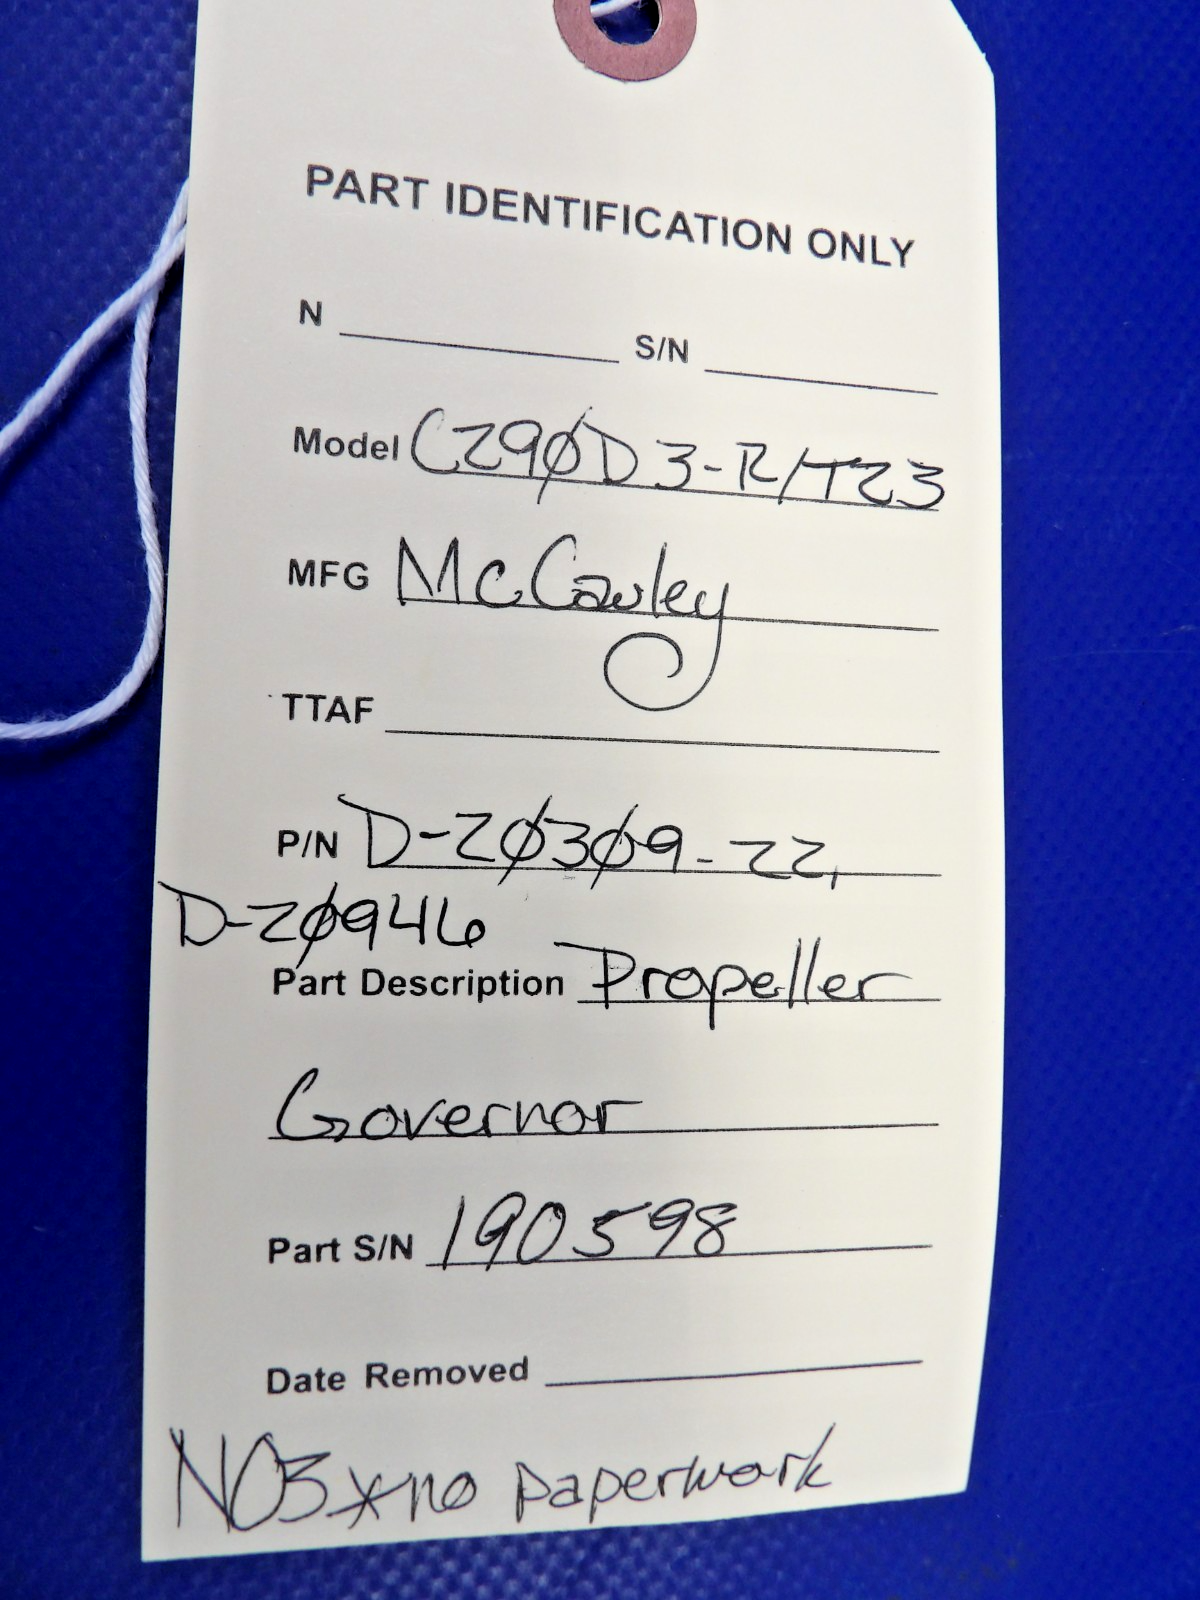 PART IDENTIFICATION ONLY
N S/N
Model C290D3-R/T23
MFG McCauley
TTAF
P/N D-20309-22,
D-20946
Part Description Propeller
Governor
Part S/N 190598
Date Removed
NO3 *no paperwork